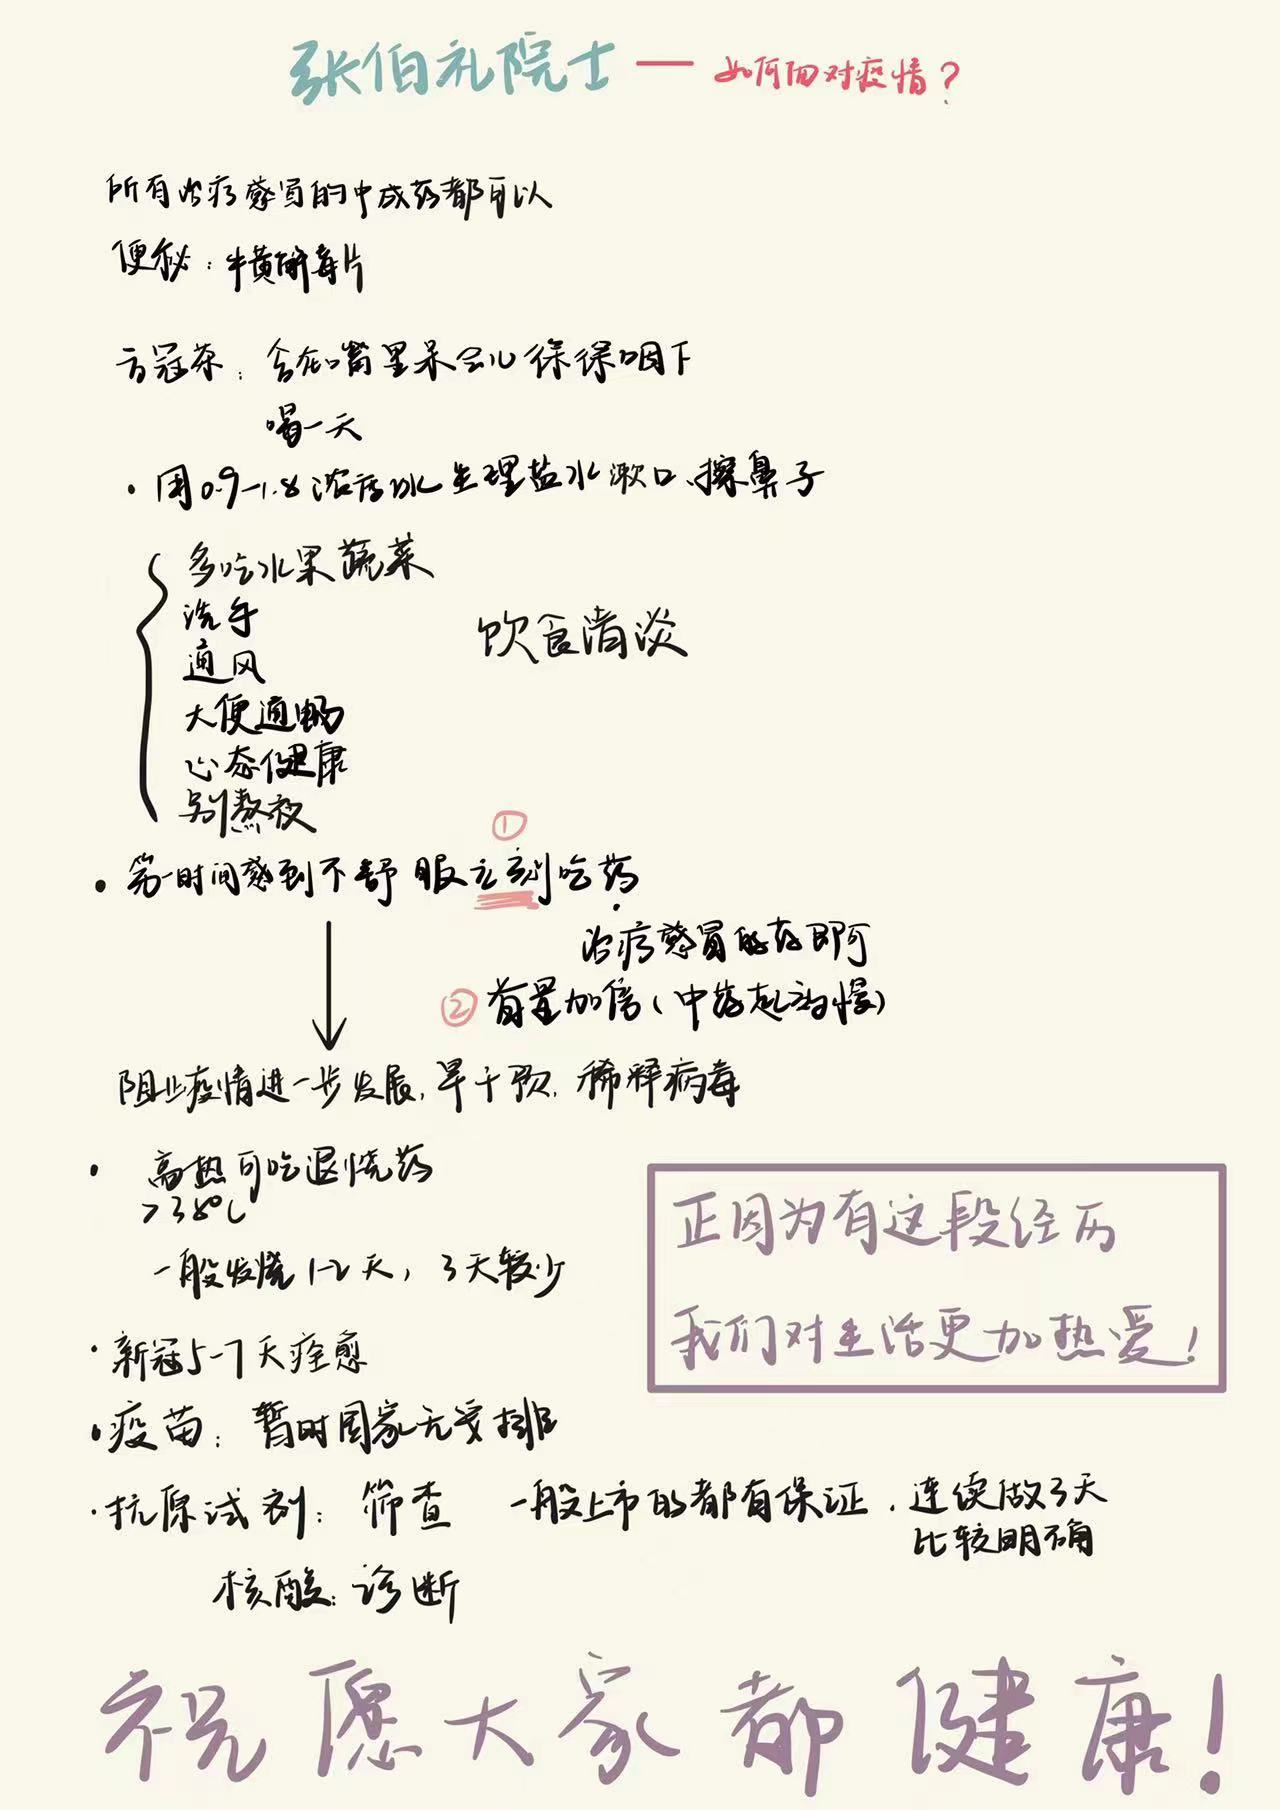 张伯礼院士 — 如何面对疫情？
所有治疗感冒的中成药都可以
便秘：牛黄解毒片
方冠茶：含在嘴里呆会儿徐徐咽下
喝一天
·用0.9-1.8浓度水生理盐水漱口、擦鼻子
多吃水果蔬菜
洗手
饮食清淡
通风
大便通畅
心态健康
别熬夜
①
·第一时间感到不舒服立刻吃药
治疗感冒的药即可
②首量加倍（中药起效慢）
阻止疫情进一步发展，早干预，稀释病毒
·高热可吃退烧药
>38°C
一般发烧1-2天，3天较少
·新冠5-7天痊愈
·疫苗：暂时国家无安排
·抗原试剂：筛查 一般上市的都有保证，连续做3天
比较明确
核酸：诊断
正因为有这段经历
我们对生活更加热爱！
祝愿大家都健康！